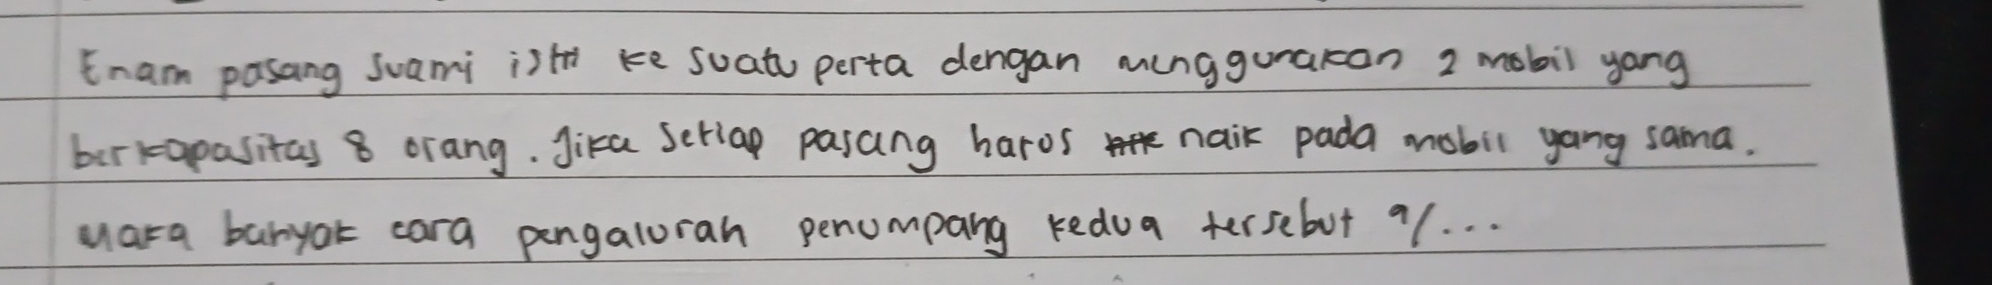 Enam pasang suami istri ke suatu perta dengan menggunakan 2 mobil yang
berkapasitas 8 orang. Jika setiap pasang harus naik pada mobil yang sama.
Maka banyak cara pengaturah penumpang kedua tersebut a/...